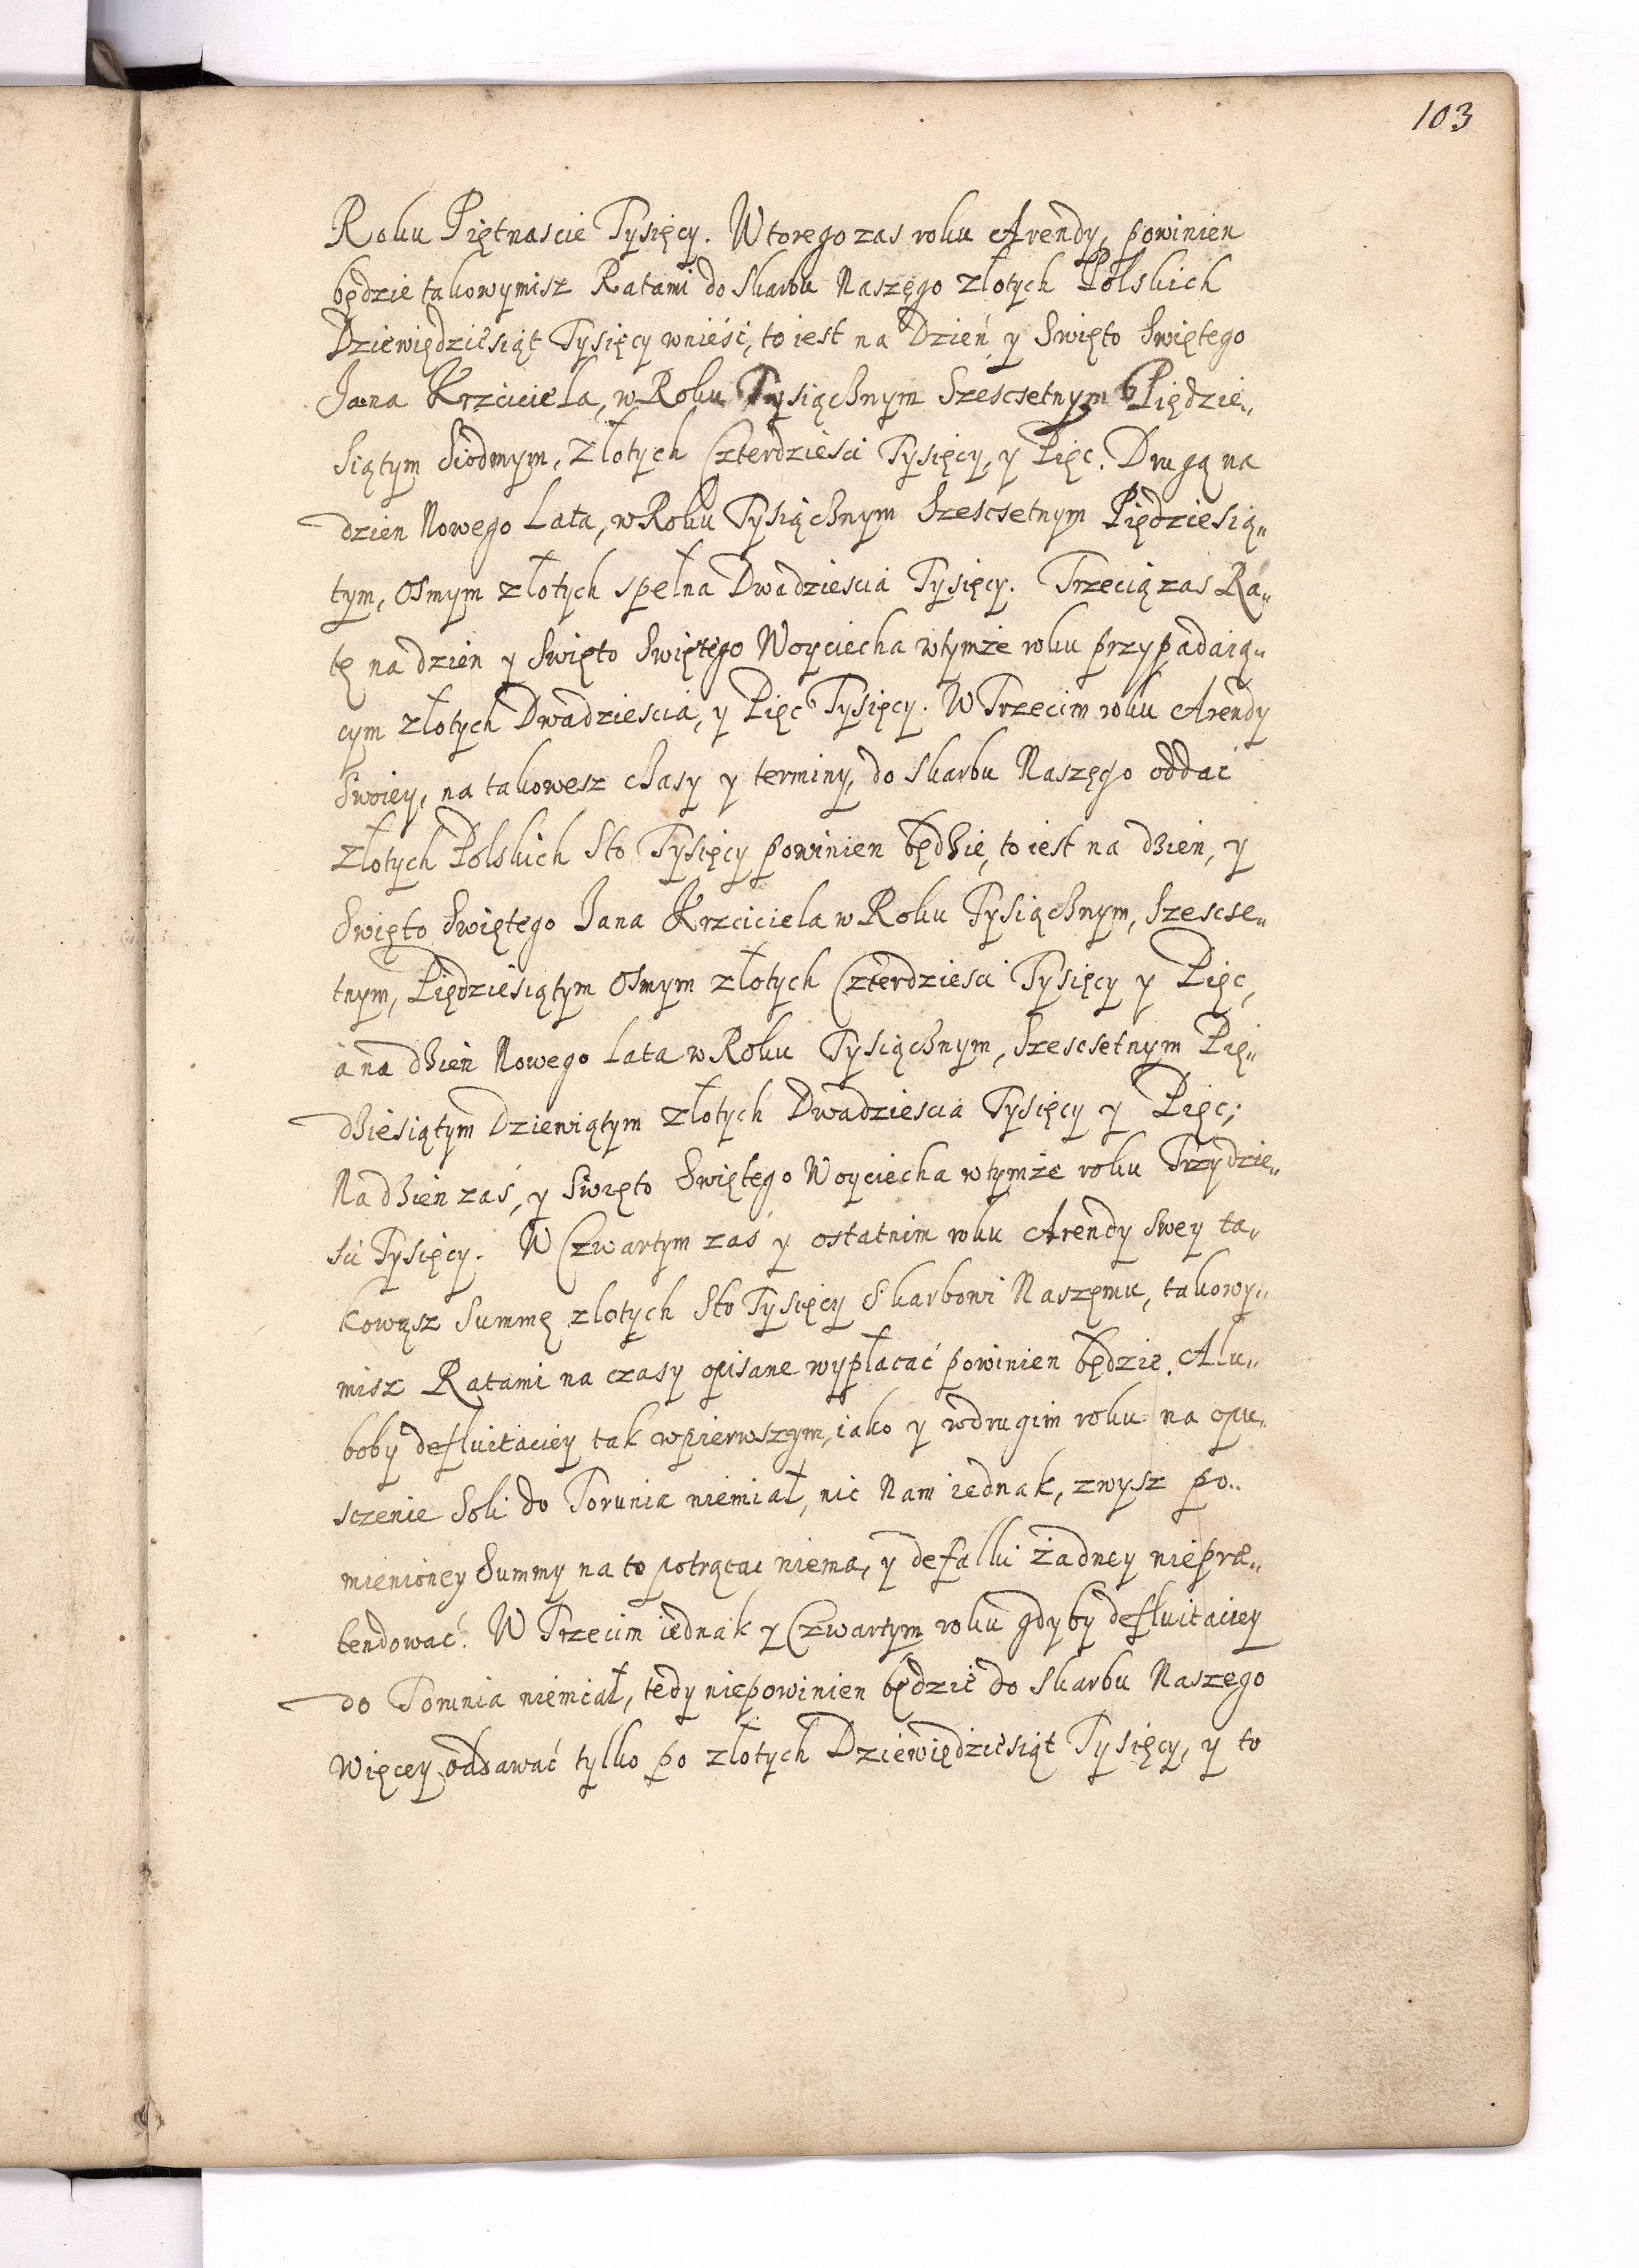 103
Roku Piętnascie Tysięcy. Wtorego zas roku Arendy, powinien
będzie takowymisz Ratami do Skarbu Naszęgo złotych Polskich
Dziewiędziesiąt Tysięcy wnieść, to iest na Dzień y Swięto Swiętego
Jana Krzciciela, w Roku Tysiącznym Szescsetnym Piędzie„
siątym Siodmym, Złotych Czterdziesci Tysięcy, y Pięc. Drugą na
dzien Nowego Lata, w Roku Tysiącznym Szescsetnym Piędziesią„
tym, Osmym złotych spełna Dwadziescia Tysięcy. Trzecią zas Ra„
tę na dzien y Swięto Swiętego Woyciecha wtymże roku przypadaią„
cym złotych Dwadziescia, y Pięc Tysięcy. W Trzecim roku Arendy
Swoiey, na takowesz czasy y terminy, do Skarbu Naszęgo oddac
złotych Polskich Sto Tysięcy powinien będzie, to iest na dzien, y
Swięto Swiętego Jana Krzciciela w Roku Tysiącznym, Szescse„
tnym, Piędziesiątym Osmym złotych Czterdziesci Tysięcy y Pięc,
à na dzien Nowego Lata w Roku Tysiącznym, Szescsetnym Pię„
dziesiątym Dziewiątym złotych Dwadziescia Tysięcy y Pięc;
Na dzien zaś, y Swięto Swiętego Woyciecha wtymże roku Trzydzie„
sci Tysięcy. W Czwartym zaś y ostatnim roku Arendy Swey ta„
kowąsz Summę złotych Sto Tysięcy Skarbowi Naszęmu, takowy„
misz Ratami na czasy opisane wypłacać powinien będzie. Alu„
boby defluitaciey tak wpierwszym, iako y wdrugim roku na opu„
sczenie Soli do Torunia niemiał, nic Nam iednak, zwysz po„
mienioney Summy na to potrącac niema, y defalki żadney niepræ„
tendować. W Trzecim iednak y Czwartym roku gdyby defluitaciey
do Torunia niemiał, tedy niepowinien będzie do Skarbu Naszego
Więcey oddawać tylko po złotych Dziewiędziesiąt Tysięcy, y to